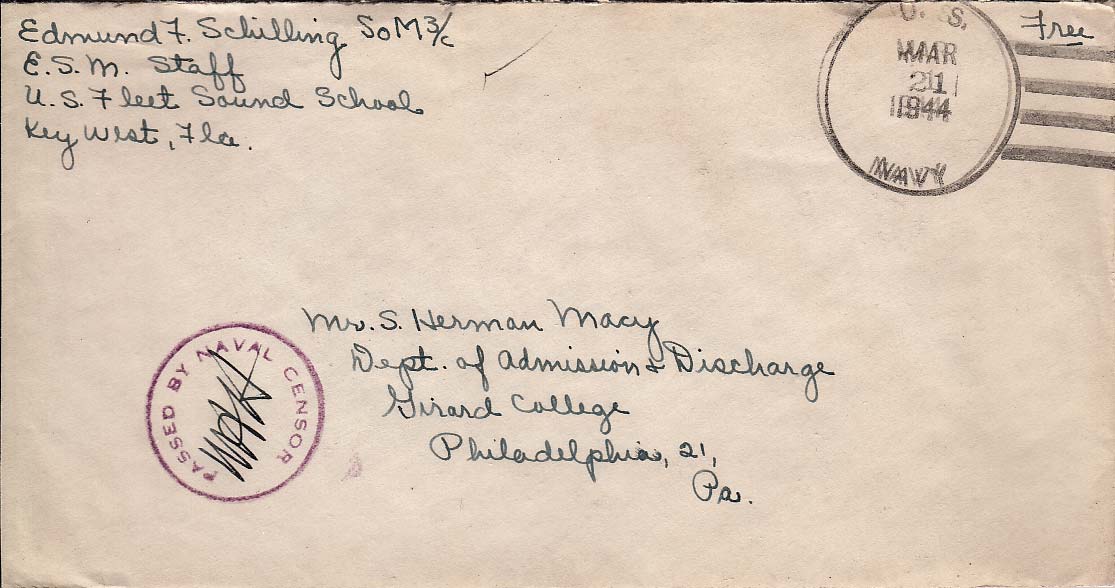 Edmund F. Schilling SoM 3/c
E.S.M. Staff
U.S. Fleet Sound School
Key West, Fla.
Free
U. S.
MAR
21
1944
NAVY
Mr. S. Herman Macy
Dept. of Admission & Discharge
Girard College
Philadelphia, 21,
Pa.
PASSED BY NAVAL CENSOR